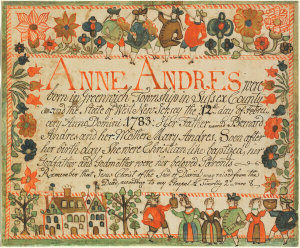 ANNE ANDRES were
born in Greenwich Township in Sussex County
and the State of West New Jersey the 12th day of
Anno Domini 1783. Her Father was Bernard
Andres and her Mother Mary Andres. Soon after
her birth day She were Christian like baptized, her
Godfather and Godmother were her beloved Parents
Remember that Jesus Christ of the Seed of David, was raised from the
Dead, according to my Gospel. 2 Timothy 2